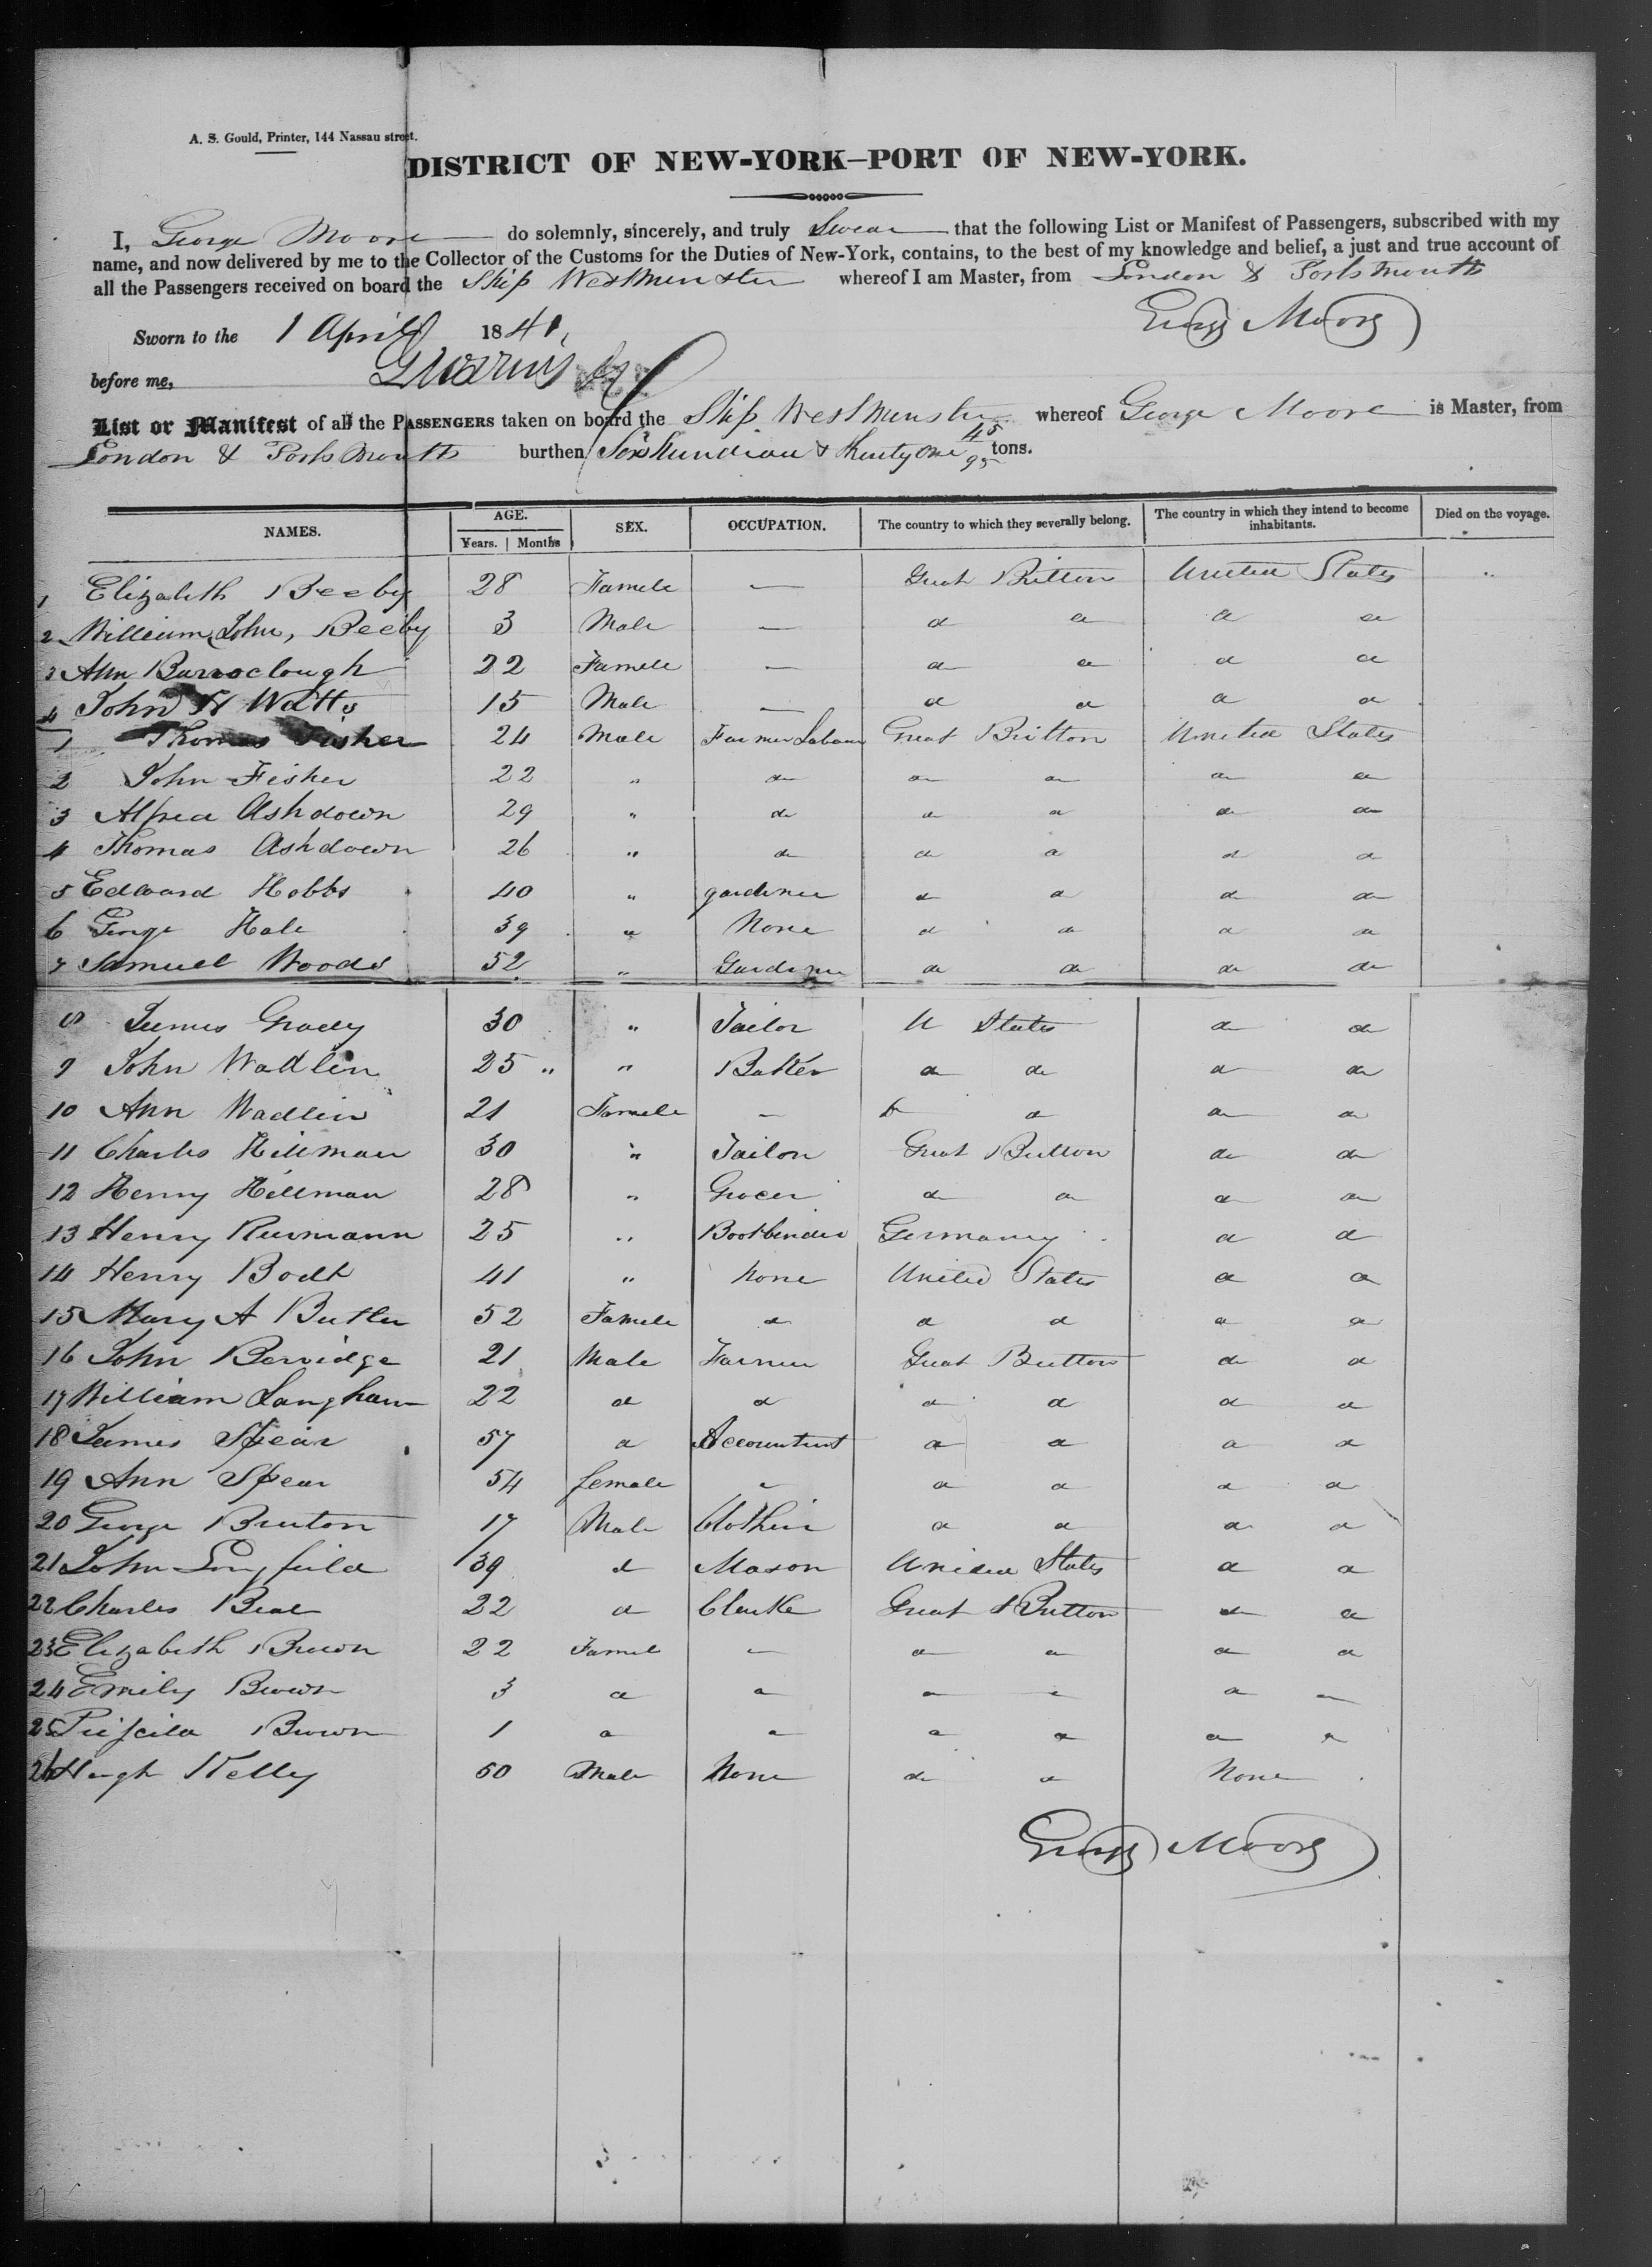 A. S. Gould, Printer, 144 Nassau street.
DISTRICT OF NEW-YORK—PORT OF NEW-YORK.
I, George Moore do solemnly, sincerely, and truly Swear that the following List or Manifest of Passengers, subscribed with my
name, and now delivered by me to the Collector of the Customs for the Duties of New-York, contains, to the best of my knowledge and belief, a just and true account of
all the Passengers received on board the Ship Westminster whereof I am Master, from London & Portsmouth
George Moore
Sworn to the 1 April 1841,
before me,
List or Manifest of all the PASSENGERS taken on board the Ship Westminster whereof George Moore is Master, from
London & Portsmouth burthen tons. 45 95
NAMES. AGE. SEX. OCCUPATION. The country to which they severally belong. The country in which they intend to become inhabitants. Died on the voyage.
Years. Months
1 Elizabeth Beeby 28 Famele — Great Britton United States "
2 William John, Beeby 3 Male — d d d d
3 Ann Barroclough 22 Famele — d d d d
4 John H Watts 15 Male — d d d d
1 Thomas Fisher 24 Male Farmer Labour Great Britton United States
2 John Fisher 22 " do do do do do
3 Alfred Ashdown 29 " do do do do do
4 Thomas Ashdown 26 " do do do do do
5 Edward Hobbs 40 " gardener do do do do
6 George Hale 39 " None do do do do
7 Samuel Woods 52 " Gardener do do do do
8 James Grady 30 " Tailor U States do do
9 John Wadlin 25 " " Baker do do do do
10 Ann Wadlin 21 Famele — do do do do
11 Charles Hillman 30 " Tailor Great Britton do do
12 Henry Hillman 28 " Grocer do do do do
13 Henry 25 " Bookbinder Germany d d
14 Henry Bodt 41 " None United States d d
15 Mary A Butler 52 Famele d d d d d
16 John Berridge 21 Male Farmer Great Britton do d
17 William Langham 22 d d d d d d
18 James Spear 57 d Accountent d d d d
19 Ann Spear 54 female — d d d d
20 George Bruton 17 Male Clothier d d d d
21 John Longfield 39 d Mason United States d d
22 Charles Beal 22 d Clerke Great Britton d d
23 Elizabeth Brown 22 Famel — d d d d
24 Emily Brown 3 d d d d d d
25 Priscila Brown 1 d d d d d d
26 Hugh Kelly 50 Male None do d None
George Moore